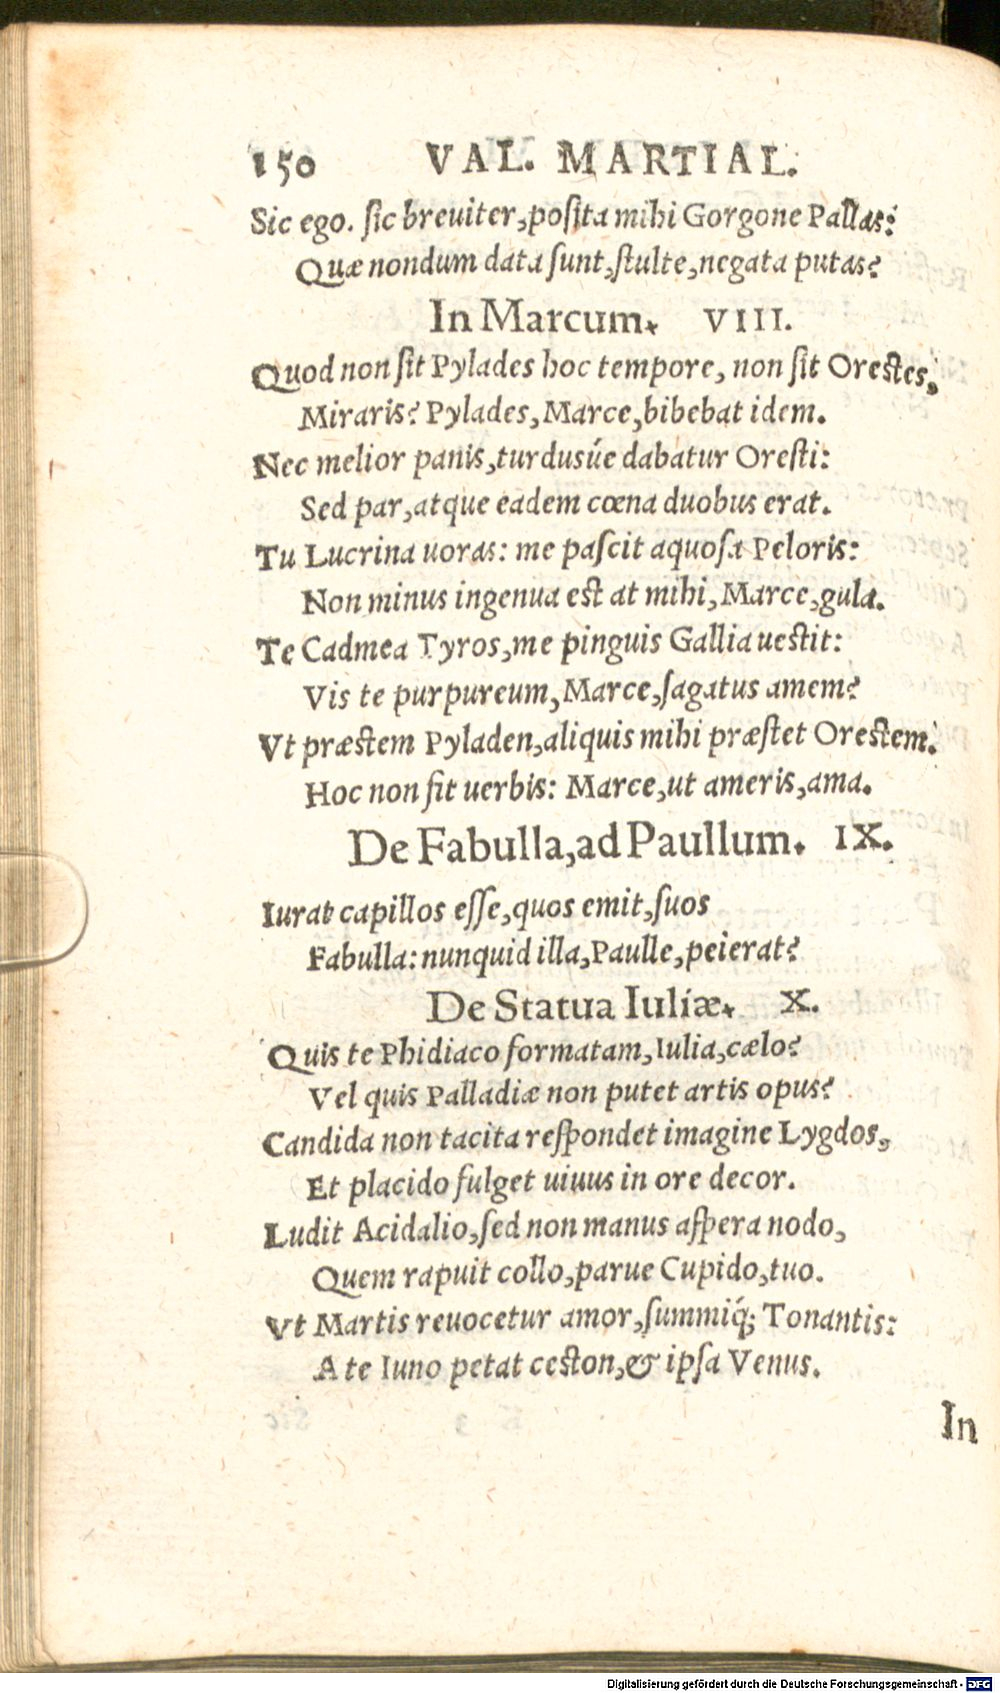 150 VAL. MARTIAL.
Sic ego. sic breuiter, posita mihi Gorgone Pallas:
Quæ nondum data sunt, stulte, negata putas?
In Marcum. VIII.
Quod non sit Pylades hoc tempore, non sit Orestes,
Miraris? Pylades, Marce, bibebat idem.
Nec melior panis, turdusúe dabatur Oresti:
Sed par, atque eadem cœna duobus erat.
Tu Lucrina uoras: me pascit aquosa Peloris:
Non minus ingenua est at mihi, Marce, gula.
Te Cadmea Tyros, me pinguis Gallia uestit:
Vis te purpureum, Marce, sagatus amem?
Vt præstem Pyladen, aliquis mihi præstet Orestem.
Hoc non fit uerbis: Marce, ut ameris, ama.
De Fabulla, ad Paullum. IX.
Iurat capillos esse, quos emit, suos
Fabulla: nunquid illa, Paulle, peierat?
De Statua Iuliæ. X.
Quis te Phidiaco formatam, Iulia, cælo?
Vel quis Palladiæ non putet artis opus?
Candida non tacita respondet imagine Lygdos,
Et placido fulget uiuus in ore decor.
Ludit Acidalio, sed non manus aspera nodo,
Quem rapuit collo, parue Cupido, tuo.
Vt Martis reuocetur amor, summiq́; Tonantis:
A te Iuno petat ceston, & ipsa Venus.
In
Digitalisierung gefördert durch die Deutsche Forschungsgemeinschaft - DFG